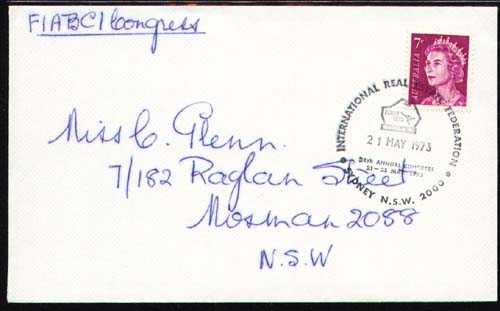 FIABCI Congress
7c
AUSTRALIA
INTERNATIONAL REAL ESTATE FEDERATION
21 MAY 1973
24th ANNUAL CONGRESS
21-25 MAY 1973
SYDNEY N.S.W. 2000
Miss C. Glenn.
7/182 Raglan Street
Mosman 2088
N.S.W